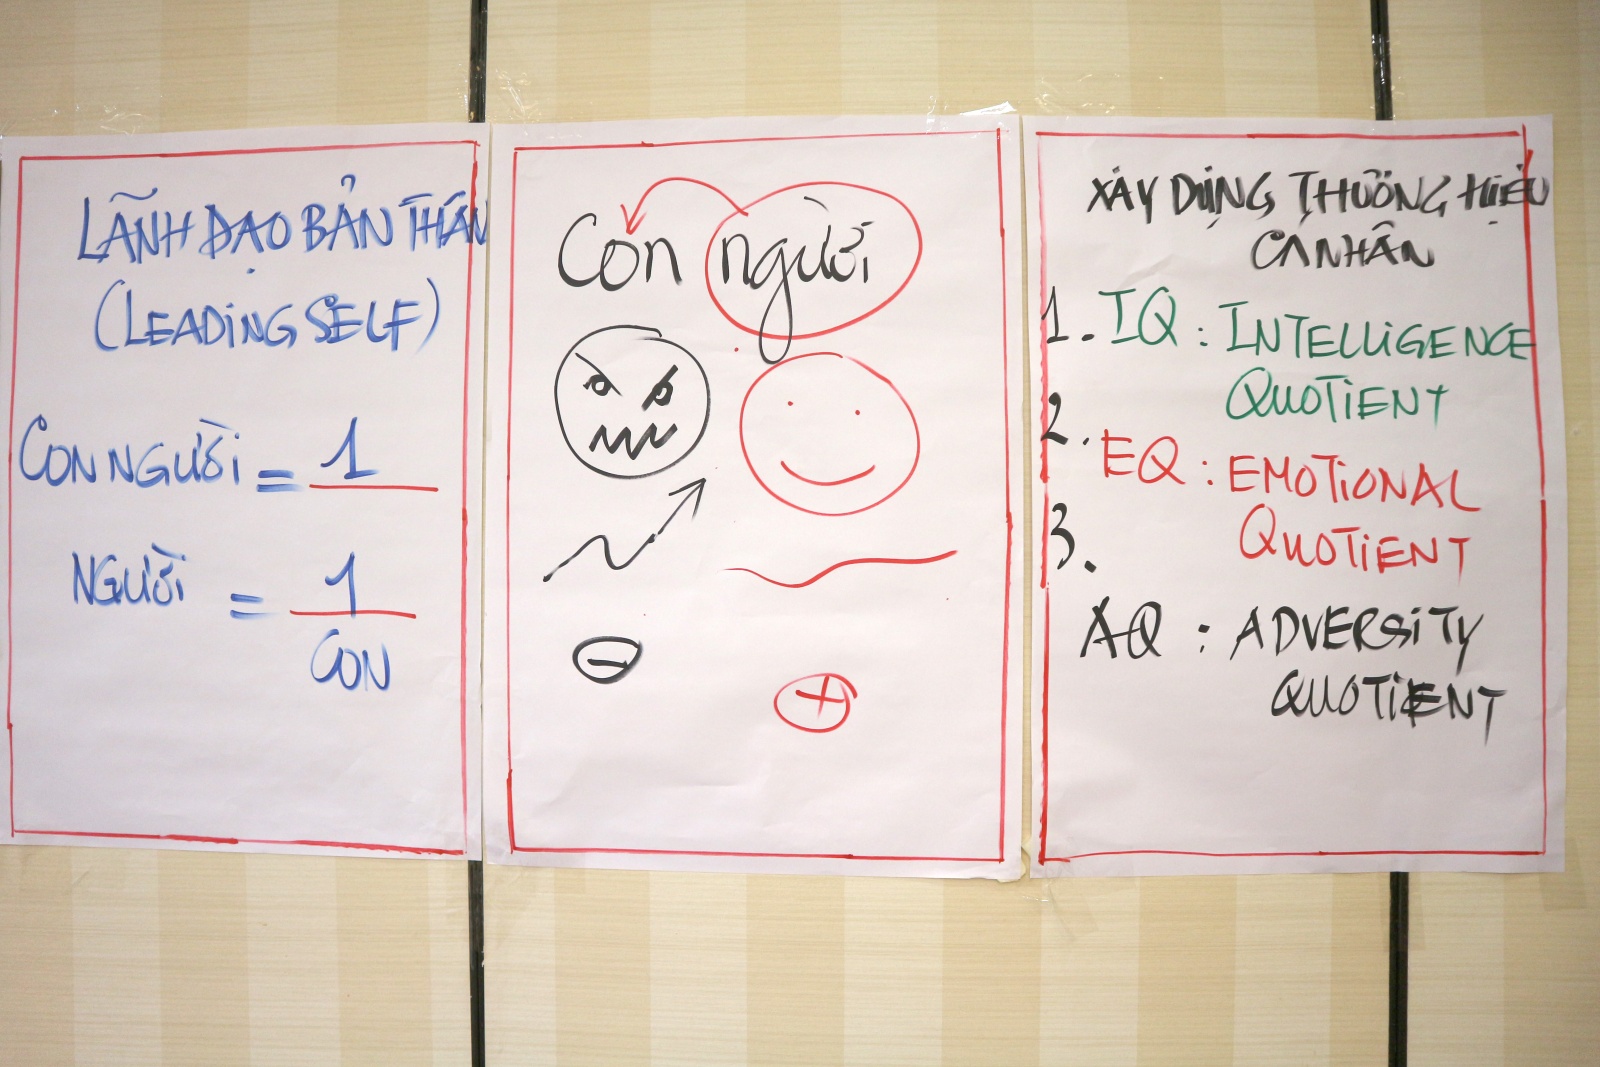 LÃNH ĐẠO BẢN THÂN
(LEADING SELF)
CON NGƯỜI = 1
NGƯỜI = 1
CON
Con người
−
+
XÂY DỰNG THƯƠNG HIỆU
CÁ NHÂN
1. IQ : INTELLIGENCE
QUOTIENT
2. EQ : EMOTIONAL
QUOTIENT
3.
AQ : ADVERSITY
QUOTIENT